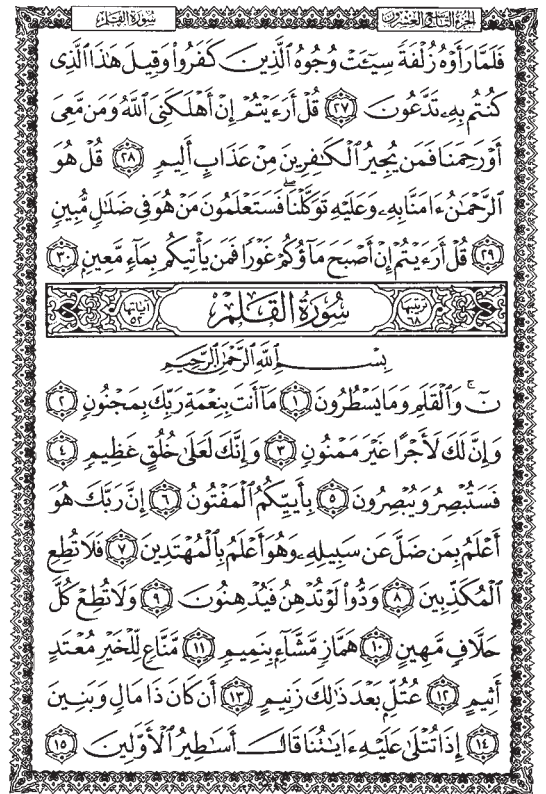 الجزء التاسع العشرون
سورة القلم
فَلَمَّا رَأَوْهُ زُلْفَةً سِيٓـَٔتْ وُجُوهُ ٱلَّذِينَ كَفَرُوا۟ وَقِيلَ هَٰذَا ٱلَّذِى
كُنتُم بِهِۦ تَدَّعُونَ ٢٧ قُلْ أَرَءَيْتُمْ إِنْ أَهْلَكَنِىَ ٱللَّهُ وَمَن مَّعِىَ
أَوْ رَحِمَنَا فَمَن يُجِيرُ ٱلْكَٰفِرِينَ مِنْ عَذَابٍ أَلِيمٍ ٢٨ قُلْ هُوَ
ٱلرَّحْمَٰنُ ءَامَنَّا بِهِۦ وَعَلَيْهِ تَوَكَّلْنَا ۖ فَسَتَعْلَمُونَ مَنْ هُوَ فِى ضَلَٰلٍ مُّبِينٍ
٢٩ قُلْ أَرَءَيْتُمْ إِنْ أَصْبَحَ مَآؤُكُمْ غَوْرًا فَمَن يَأْتِيكُم بِمَآءٍ مَّعِينٍۭ ٣٠
ترتيبها ٦٨ سُورَةُ القَلَمِ آياتها ٥٢
بِسْمِ ٱللَّهِ ٱلرَّحْمَٰنِ ٱلرَّحِيمِ
نٓ ۚ وَٱلْقَلَمِ وَمَا يَسْطُرُونَ ١ مَآ أَنتَ بِنِعْمَةِ رَبِّكَ بِمَجْنُونٍ ٢
وَإِنَّ لَكَ لَأَجْرًا غَيْرَ مَمْنُونٍ ٣ وَإِنَّكَ لَعَلَىٰ خُلُقٍ عَظِيمٍ ٤
فَسَتُبْصِرُ وَيُبْصِرُونَ ٥ بِأَييِّكُمُ ٱلْمَفْتُونُ ٦ إِنَّ رَبَّكَ هُوَ
أَعْلَمُ بِمَن ضَلَّ عَن سَبِيلِهِۦ وَهُوَ أَعْلَمُ بِٱلْمُهْتَدِينَ ٧ فَلَا تُطِعِ
ٱلْمُكَذِّبِينَ ٨ وَدُّوا۟ لَوْ تُدْهِنُ فَيُدْهِنُونَ ٩ وَلَا تُطِعْ كُلَّ
حَلَّافٍ مَّهِينٍ ١٠ هَمَّازٍ مَّشَّآءٍۭ بِنَمِيمٍ ١١ مَّنَّاعٍ لِّلْخَيْرِ مُعْتَدٍ
أَثِيمٍ ١٢ عُتُلٍّۭ بَعْدَ ذَٰلِكَ زَنِيمٍ ١٣ أَن كَانَ ذَا مَالٍ وَبَنِينَ
١٤ إِذَا تُتْلَىٰ عَلَيْهِ ءَايَٰتُنَا قَالَ أَسَٰطِيرُ ٱلْأَوَّلِينَ ١٥